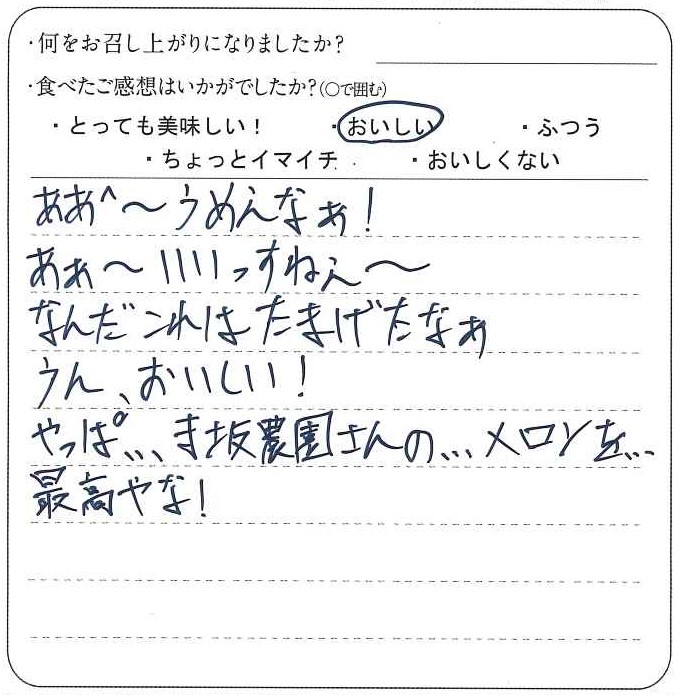 ・何をお召し上がりになりましたか?
・食べたご感想はいかがでしたか?(○で囲む)
・とっても美味しい! ・おいしい ・ふつう
・ちょっとイマイチ ・おいしくない
ああ^～うめえなぁ!
あぁ～いいっすねぇ～
なんだこれはたまげたなぁ
うん、おいしい!
やっぱ...寺坂農園さんの...メロンを...
最高やな!